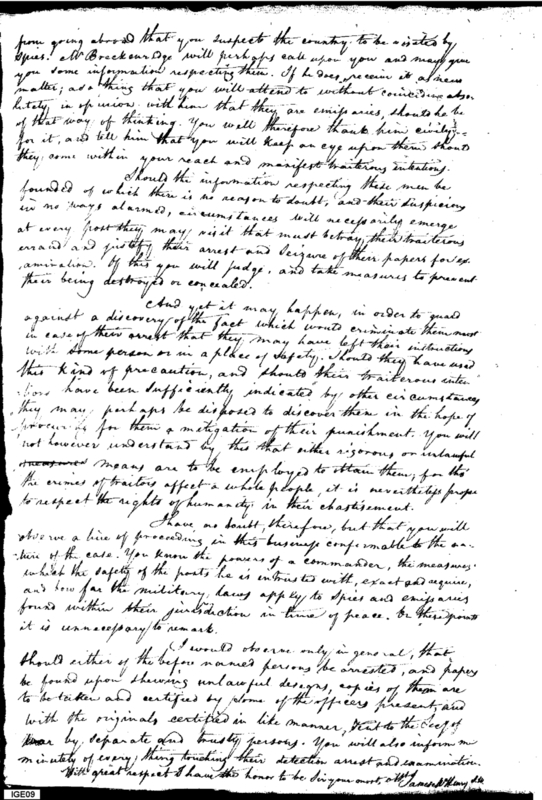 from going abroad that you suspect the country to be visited by
spies. Mr Breckenridge will perhaps call upon you and may give
you some information respecting them. If he does, receive it as new
matter; as a thing that you will attend to without coinciding abso
lutely in opinion with him that they are emissaries, should he be
of that way of thinking. You will therefore thank him civilly
for it, and tell him that you will keep an eye upon them should
they come within your reach and manifest traiterous intentions.
Should the information respecting these men be
founded of which there is no reason to doubt, and their suspicions
in no ways alarmed, circumstances will necessarily emerge
at every post they may visit that must betray their traiterous
errand and justify their arrest and seizure of their papers for ex
amination. Of this you will judge, and take measures to prevent
their being destroyed or concealed.
And yet it may happen, in order to guard
against a discovery of the fact which would criminate them most
in case of their arrest that they may have left their instructions
with some person or in a place of safety. Should they have used
this kind of precaution, and should their traiterous inten
tions have been sufficiently indicated by other circumstances
they may perhaps be disposed to discover them in the hope of
procuring for them a mitigation of their punishment. You will
not however understand by this that either rigorous or unlawful
means are to be employed to obtain them; for tho'
the crimes of traitors affect a whole people, it is nevertheless proper
to respect the rights of humanity in their chastisement.
I have no doubt, therefore, but that you will
observe a line of proceeding in this business conformable to the na-
ture of the case. You know the powers of a commander, the measures
which the safety of the posts he is intrusted with, exact and require,
and how far the military laws apply to spies and emissaries
found within their jurisdiction in time of peace. On these points
it is unnecessary to remark.
I would observe only in general, that
should either of the before named persons be arrested, and papers
be found upon shewing unlawful designs, copies of them are
to be taken and certified by some of the officers present, and
with the originals certified in like manner, sent to the Secy of
War by separate and trusty persons. You will also inform me
minutely of every thing touching their detection arrest and examination.
With great respect I have the honor to be Sir your most ob St
James McHenry
IGE09